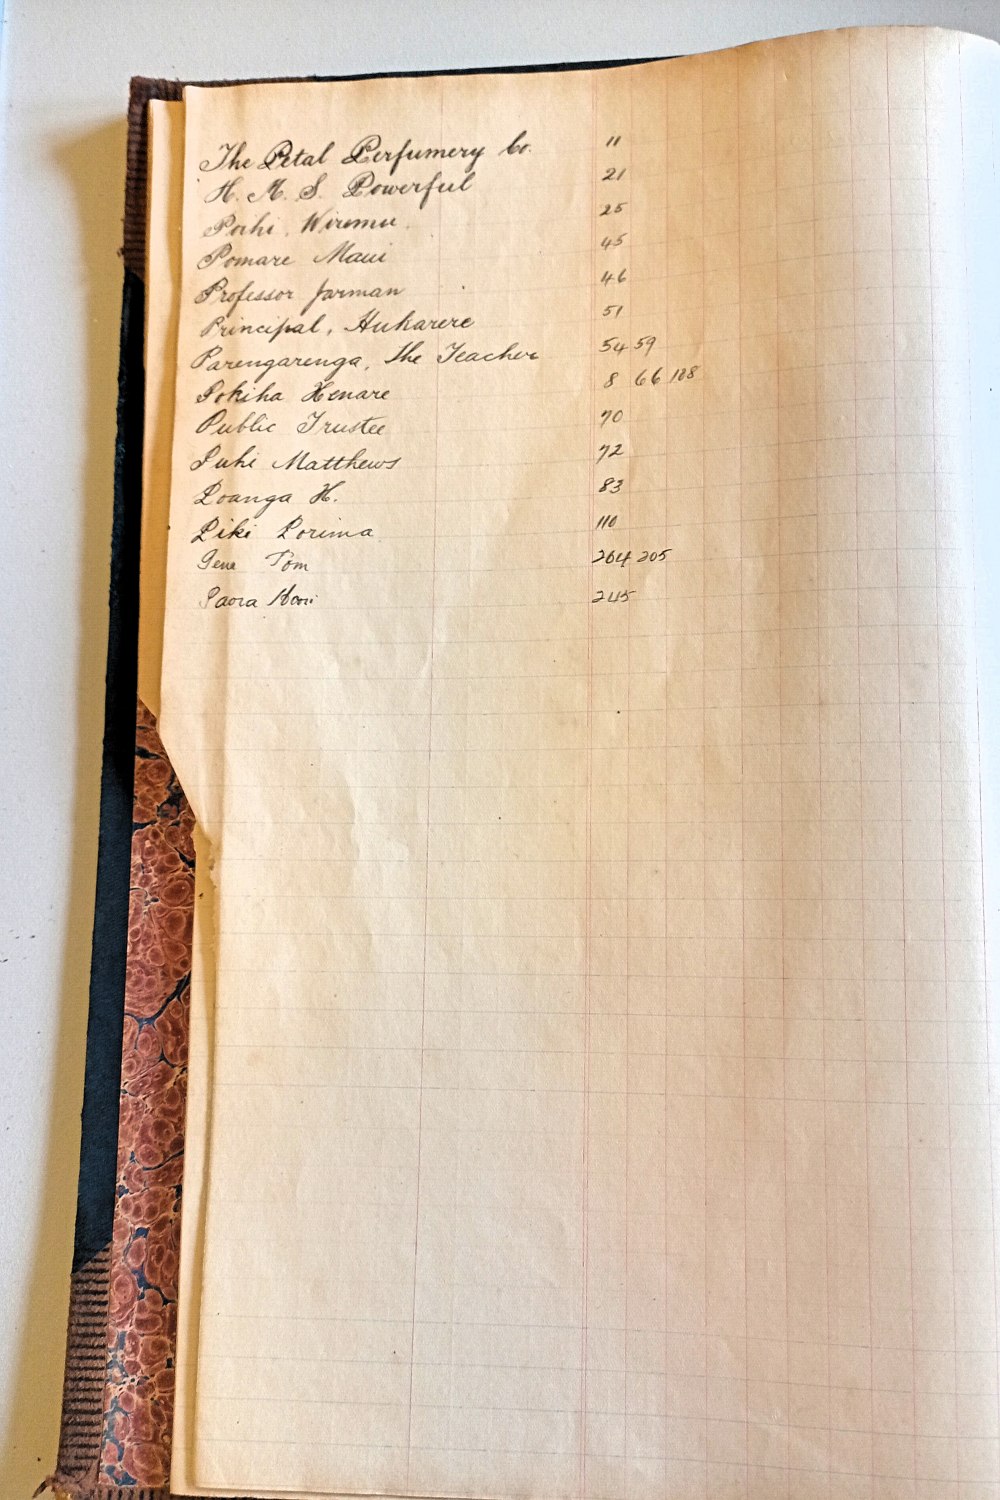 The Petal Perfumery Co. 11
H. M. S. Powerful 21
Pochi, Wiremu. 25
Pomare Maui 45
Professor Jarman 46
Principal, Hukarere 51
Parengarenga, The Teacher 54 59
Pokiha Henare 8 66 188
Public Trustee 70
Puhi Matthews 72
Poanga H. 83
Piki Porima 110
Pene Tom 264 205
Paora Hori 245